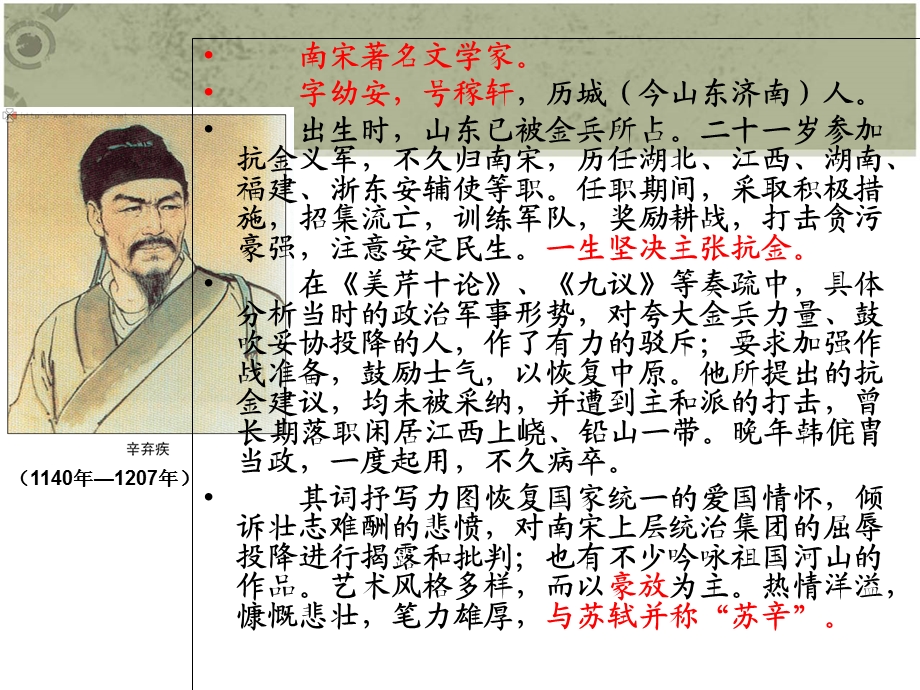 • 南宋著名文学家。
• 字幼安，号稼轩，历城（今山东济南）人。
• 出生时，山东已被金兵所占。二十一岁参加
抗金义军，不久归南宋，历任湖北、江西、湖南、
福建、浙东安辅使等职。任职期间，采取积极措
施，招集流亡，训练军队，奖励耕战，打击贪污
豪强，注意安定民生。一生坚决主张抗金。
• 在《美芹十论》、《九议》等奏疏中，具体
分析当时的政治军事形势，对夸大金兵力量、鼓
吹妥协投降的人，作了有力的驳斥；要求加强作
战准备，鼓励士气，以恢复中原。他所提出的抗
金建议，均未被采纳，并遭到主和派的打击，曾
长期落职闲居江西上峣、铅山一带。晚年韩侂胄
当政，一度起用，不久病卒。
• 其词抒写力图恢复国家统一的爱国情怀，倾
诉壮志难酬的悲愤，对南宋上层统治集团的屈辱
投降进行揭露和批判；也有不少吟咏祖国河山的
作品。艺术风格多样，而以豪放为主。热情洋溢，
慷慨悲壮，笔力雄厚，与苏轼并称“苏辛”。
辛弃疾
（1140年—1207年）